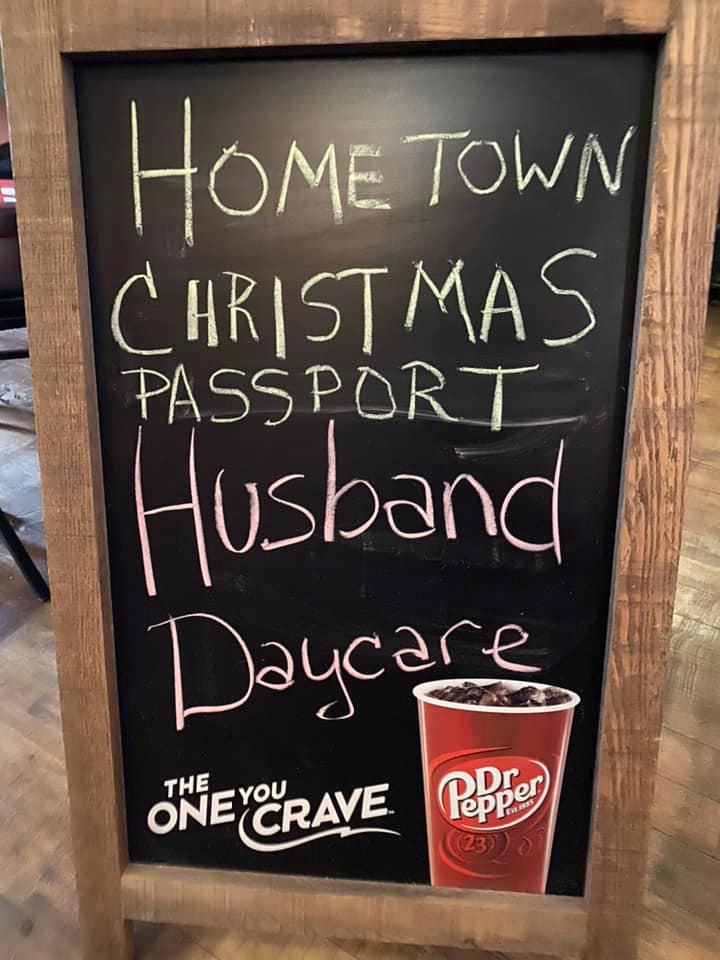 HOME TOWN
CHRISTMAS
PASSPORT
Husband
Daycare
THE
ONE YOU
CRAVE
Dr
Pepper
Est. 1885
23